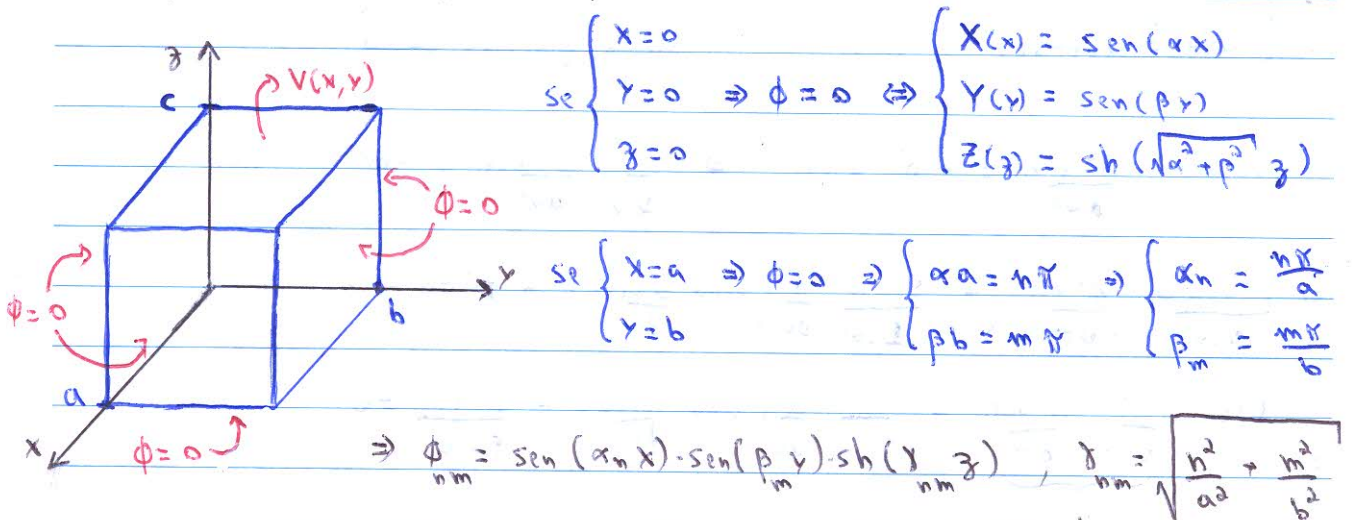 z
c
V(x,y)
φ=0
φ=0
y
b
a
x
φ=0
se { x=0
y=0 ⇒ φ=0 ⇔
z=0
{ X(x) = sen(αx)
Y(y) = sen(βy)
Z(z) = sh(√(α²+β²) z)
se { x=a
y=b ⇒ φ=0 ⇒ { αa=nπ
βb=mπ ⇒ { αn = nπ/a
βm = mπ/b
⇒ φnm = sen(αn x)·sen(βm y)·sh(γnm z) , γnm = √(n²/a² + m²/b²)